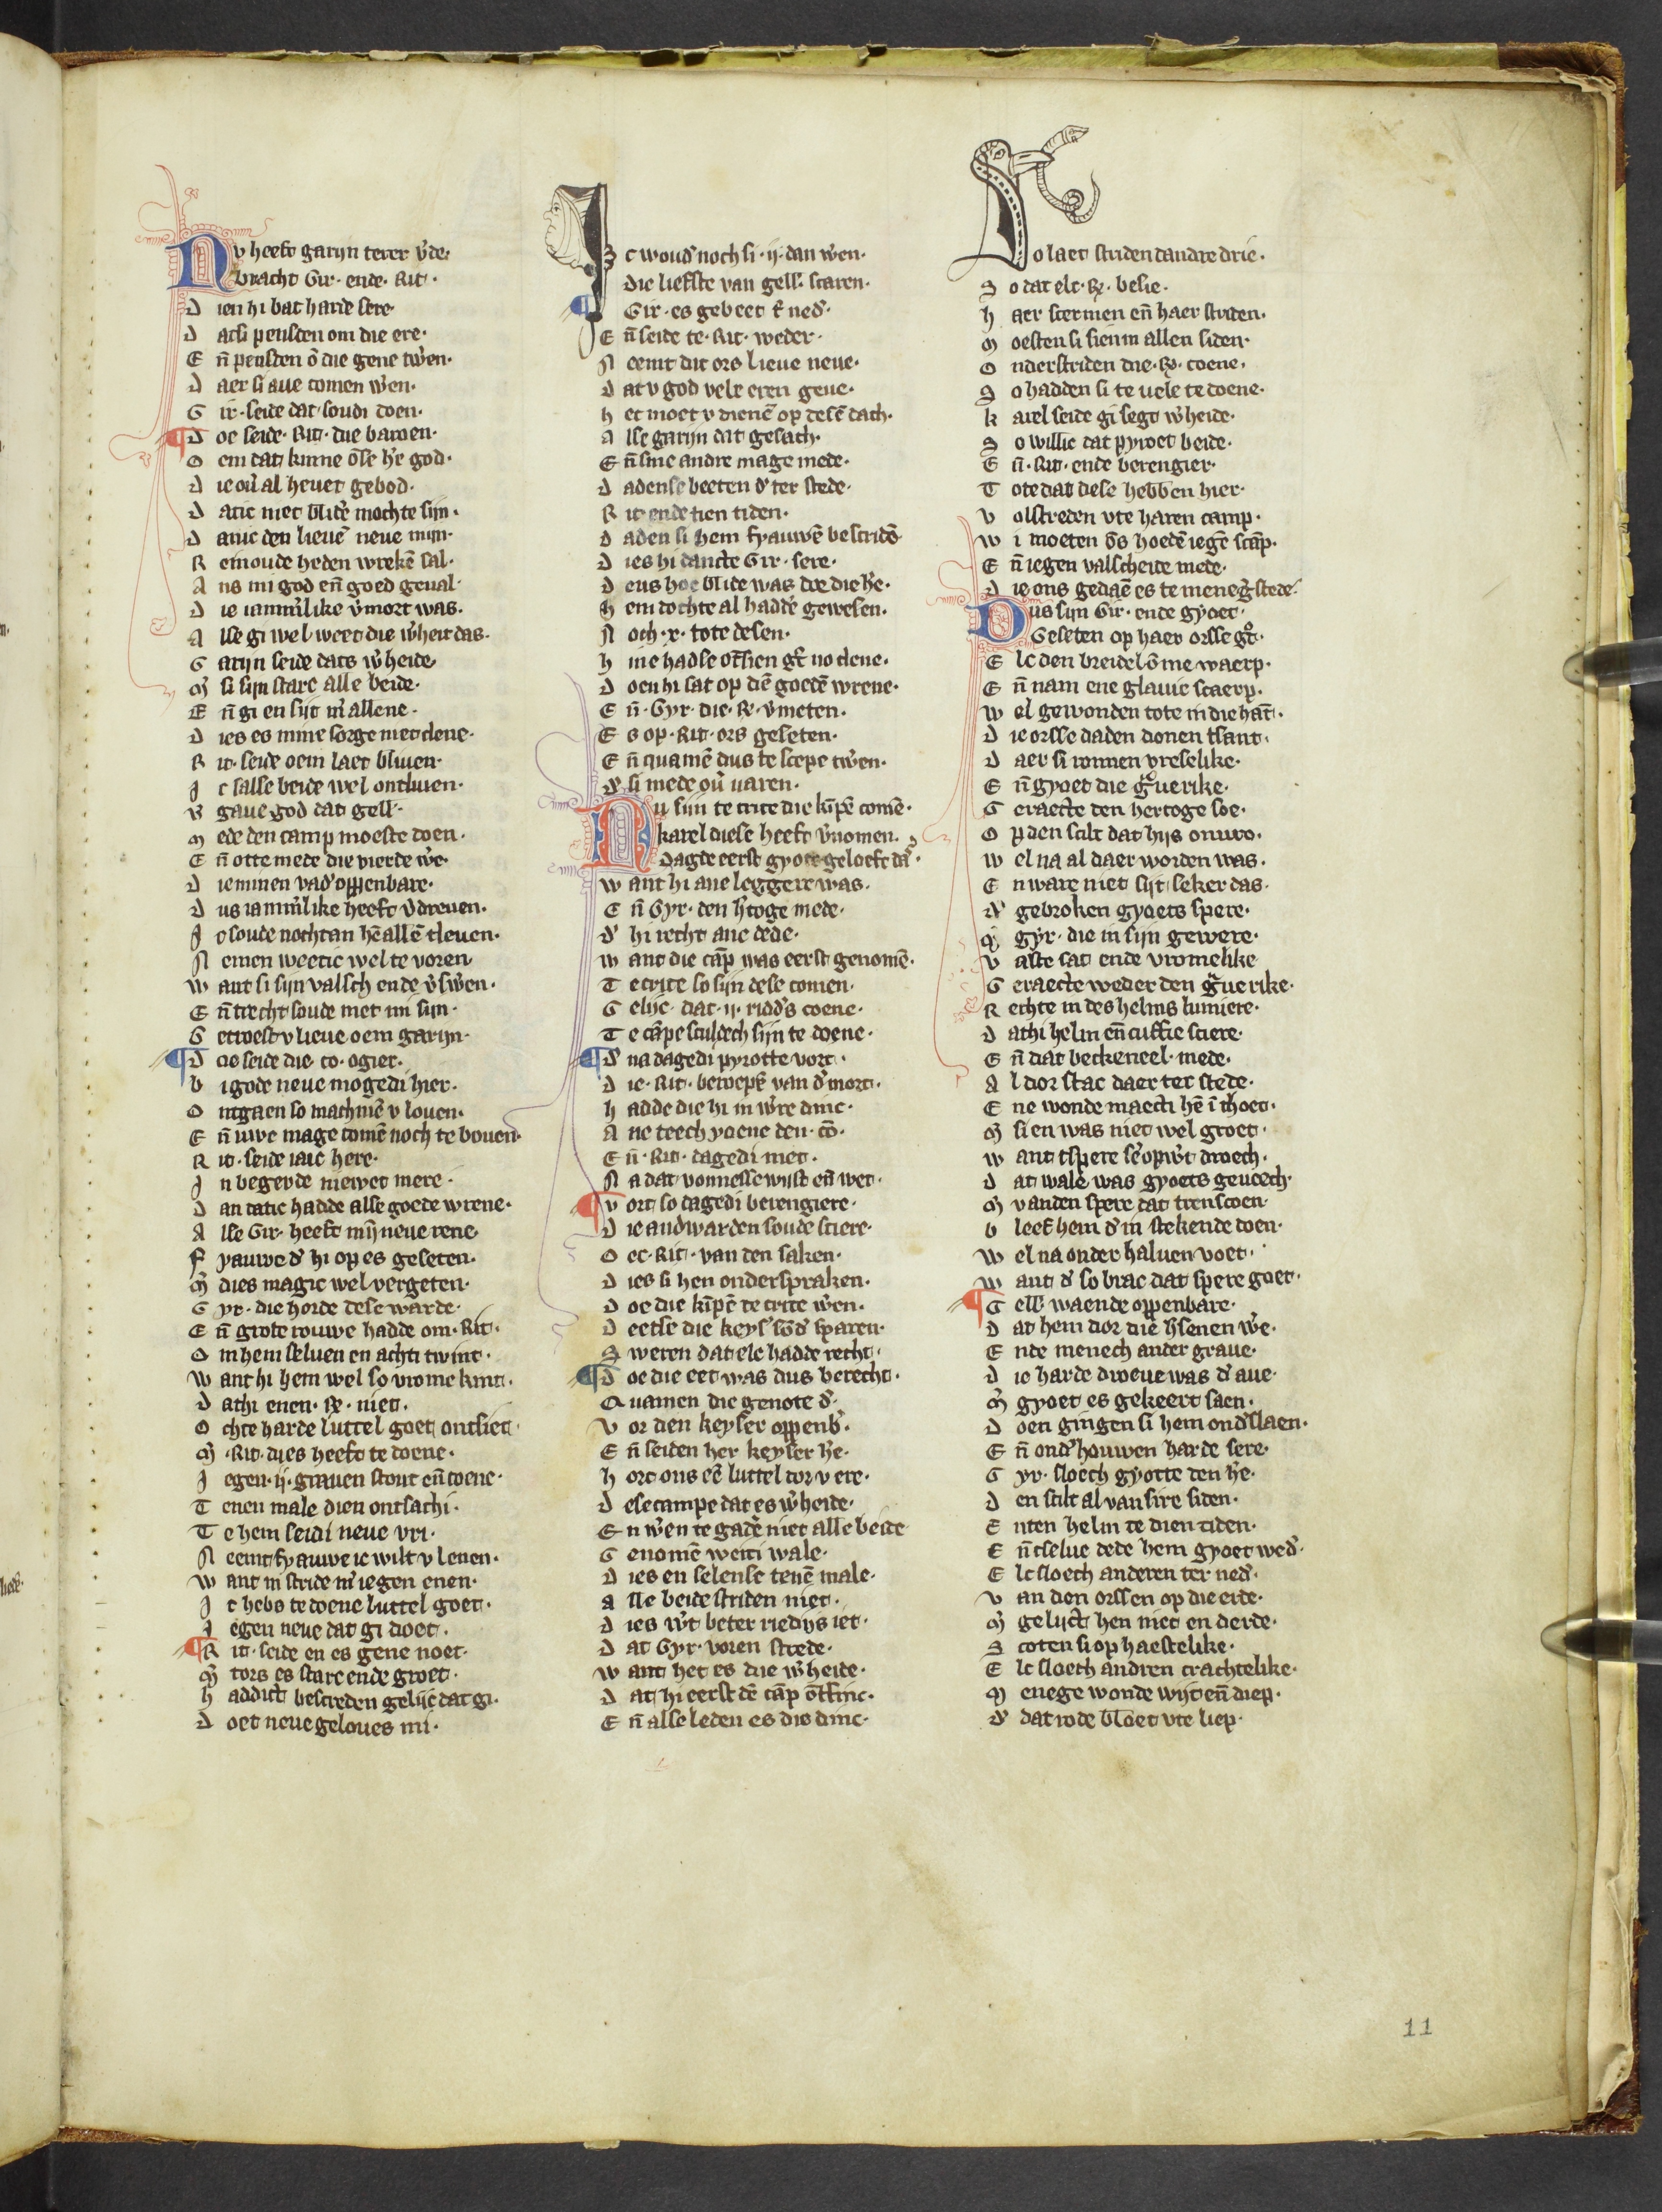 Nv heeft garyn terer v̾de.
bracht Gir· ende· Rit·
D ien hi bat harde sere
D atsi peusden om die ere·
E n̄ peusden ō die gene tw̾en·
D aer si aue comen w̾en·
G ir· seide dat soudi doen·
D oe seide· Rit· die baroen·
O em dat kinne ōse h̾e god·
D ie ou̾ al heuet gebod·
D atic niet blide mochte sijn·
D anic den lieuē neue mijn·
R einoude heden wrekē sal·
A ns mi god en̄ goed geual·
D ie iamm̾like v̾mort was·
A lse gi wel weet die w̾heit das·
G arijn seide dats w̾heide
M̾ si sijn starc alle beide·
E n̄ gi en sijt m̾ allene·
D ies es mine sorge niet clene·
R it· seide oem laet bliuen·
J c salse beide wel ontliuen·
v gaue god dat gell·
M ede den camp moeste doen·
E n̄ otte mede die vierde w̾e·
D ie minen vad̾ oppenbare·
D us iamm̾like heeft v̾dreuen·
J c soude nochtan hē allē tleuen·
N emen weetic wel te voren
W ant si sijn valsch ende v̾sw̾en·
E n̄ trecht soude met mi sijn·
G etroest v lieue oem garijn·
D oe seide die co· ogier·
b i gode neue mogedi hier·
O ntgaen so machmē v louen·
E n̄ uwe mage comē noch te bouen·
R it· seide iaic here·
J n begerde niewet mere·
D an datic hadde alse goede wrene·
A lse Gir· heeft mijn neue rene
F yauwe d̾ hi op es geseten·
M̾ dies magic wel vergeten·
G yr· die horde dese warde·
E n̄ grote rouwe hadde om· Rit·
O m hem seluen en achti twint·
W ant hi hem wel so vrome kint·
D athi enen· R̾· niet·
O chte harde luttel goet ontsiet
M̾ ·Rit· dies heeft te doene·
J egen· ij· grauen stout en̄ coene·
T enen male dien ontsachi·
T e hem seidi neue vri·
N eemt fyauwe ic wilt v lenen·
W ant in stride m̾ iegen enen·
J c hebs te doene luttel goet·
J egen neue dat gi doet·
R it· seide en es gene noet·
M̾ tors es starc ende groet·
h addict bestreden gelijc dat gi·
D oet neue geloues mi·
Jc woud̾ noch si· ij· dan w̾en·
Die liefste van gell· scaren·
Gir· es gebeet t̾ ned̾·
E n̄ seide te· Rit· weder·
N eemt dit ors lieue neue·
D at v god vele eren geue·
h et moet v dienē op desē dach·
A lse garijn dat gesach·
E n̄ sine andre mage mede·
D adense beeten d̾ ter stede·
R it· ende tien tiden·
D aden si hem fyauwē bescridē
D ies hi dancte Gir· sere·
D eus hoe blide was doe die h̾e·
h em dochte al hadd̾e gewesen·
N och· x· tote desen·
h ine hadse ontsien gr̾ no clene·
D oen hi sat op diē goedē wrene·
E n̄· Gyr· die· R̾· v̾meten·
E s op· Rit· ors geseten·
E n̄ quamē dus te scepe tw̾en·
d̾ si mede ou̾ uaren·
Nu sijn te crite die kīpē comē·
karel diese heeft v̾nomen·
Dagde eerst gyote geloeft da͛·
W ant hi ane leggere was·
E n̄ Gyr· den h̾toge mede·
d̾ hi recht ane dede·
W ant die cāp was eerst genomē·
T e crite so sijn dese comen·
G elijc· dat· ij· ridd̾s coene·
T e cāpe sculdech sijn te doene·
D̾ na dagedi pyrotte vort·
D ie· Rit· beroepē van d̾ mort·
h adde die hi in w̾re dinc·
A ne teech yoene den· cō·
E n̄· Rit· dagedi met·
N a dat vonnesse wijst en̄ wet·
V ort so dagedi berengiere·
D ie andwarden soude sciere·
O ec· Rit· van den saken·
D ies si hen ondersproken·
D oe die kīpē te crite w̾en·
D eetse die keys̾ sōd̾ sparen·
S weren dat elc hadde recht·
D oe die eet was dus berecht·
Q uamen die genote d̾·
V or den keyser oppenb̾·
E n̄ seiden her keyser h̾e·
h ort ons eē luttel dor v ere·
D ese campe dat es w̾heide·
E n w̾en te gad̾e niet alle beide
G enomē weeti wale·
D ies en selense tenē male·
A lle beide striden niet·
D ies w̾t beter riedijs iet·
D at Gyr· voren strede·
W ant het es die w̾heide·
D at hi eerst dē cāp ōtfinc·
E n̄ alse leden es dis dinc·
So laet striden dandre drie·
S o dat elc· R̾· besie·
h aer scermen en̄ haer striden·
M oesten si sien in allen siden·
O nderstriden die· R̾· coene·
S o hadden si te uele te doene·
k arel seide gi segt w̾heide·
S o willic dat pyroet beide·
E n̄· Rit· ende berengier·
T ote dat dese hebben hier·
V olstreden vte haren camp·
W i moeten ōs hoedē iegē scāp·
E n̄ iegen valscheide mede·
D ie ons gedaē es te meneg̾ stede·
Dus sijn Gir· ende gyoet·
Geseten op haer orsse gr̾t·
E lc den breidel ōme waerp·
E n̄ nam ene glauie scaerp·
W el gewonden tote in die hāt·
D ie orsse daden donen tsant·
D aer si ronnen vreselike·
E n̄ gyoet die gr̾uerike·
G eraecte den hertoge soe·
O p den scilt dat hijs onuro·
W el na al daer worden was·
E n ware niet sijt seker das·
d̾ gebroken gyoets spere·
M̾ gyr· die in sijn gewere·
V aste sat ende vromelike
G eraecte weder den gr̾uerike·
R echte in des helms lumiere·
D athi helm en̄ cuffie sciere·
E n̄ dat beckeneel mede·
A l dor stac daer ter stede·
E ne wonde maecti hē ī thoet·
M̾ si en was niet wel groet·
W ant tspere se̾ opw̾t droech·
D at wale was gyoets geuoech·
M̾ vanden spere dat trenstoen·
b leef hem d̾ in stekende doen·
W el na onder haluen voet·
W ant d̾ so brac dat spere goet·
G ell· waende oppenbare·
D at hem dor die h̾senen w̾e·
E nde menech ander graue·
D ie harde droeue was d̾ aue·
M̾ gyoet es gekeert saen·
D oen gingen si hem ond̾slaen·
E n̄ ond̾houwen harde sere·
G yr· sloech gyotte den h̾e·
D en scilt al van sire siden·
E nten helm te dien tiden·
E n̄ tselue dede hem gyoet wed̾·
E lc sloech anderen ter ned̾·
V an den orssen op die erde·
M̾ gelijct hen niet en derde·
S coten si op haestelike·
E lc sloech andren crachtelike·
M enege wonde wijt en̄ diep·
d̾ dat rode bloet vte liep·
11